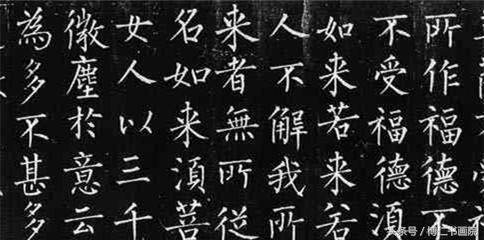 所作福德不
不受福德湏
如来若来若
人不解我所
来者無所従
名如来湏菩
女人以三千
微塵於意云
為多不甚多
头条号 / 博仁书画院